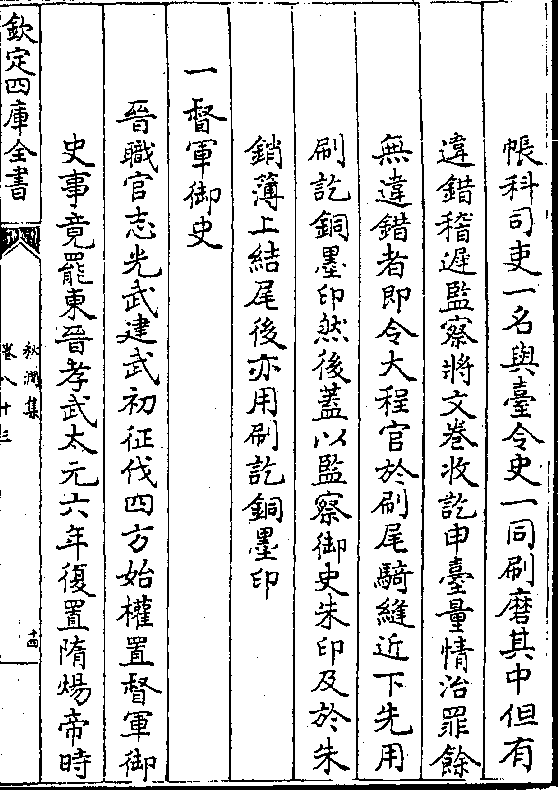 帳科司吏一名與臺令史一同刷磨其中但有
違錯稽遲監察將文卷收訖申臺量情治罪餘
無違錯者即令大程官於刷尾騎縫近下先用
刷訖銅墨印然後蓋以監察御史朱印及於朱
銷簿上結尾後亦用刷訖銅墨印
一督軍御史
晉職官志光武建武初征伐四方始權置督軍御
史事竟罷東晉孝武太元六年復置隋煬帝時
欽定四庫全書
秋澗集
卷八十三
十四